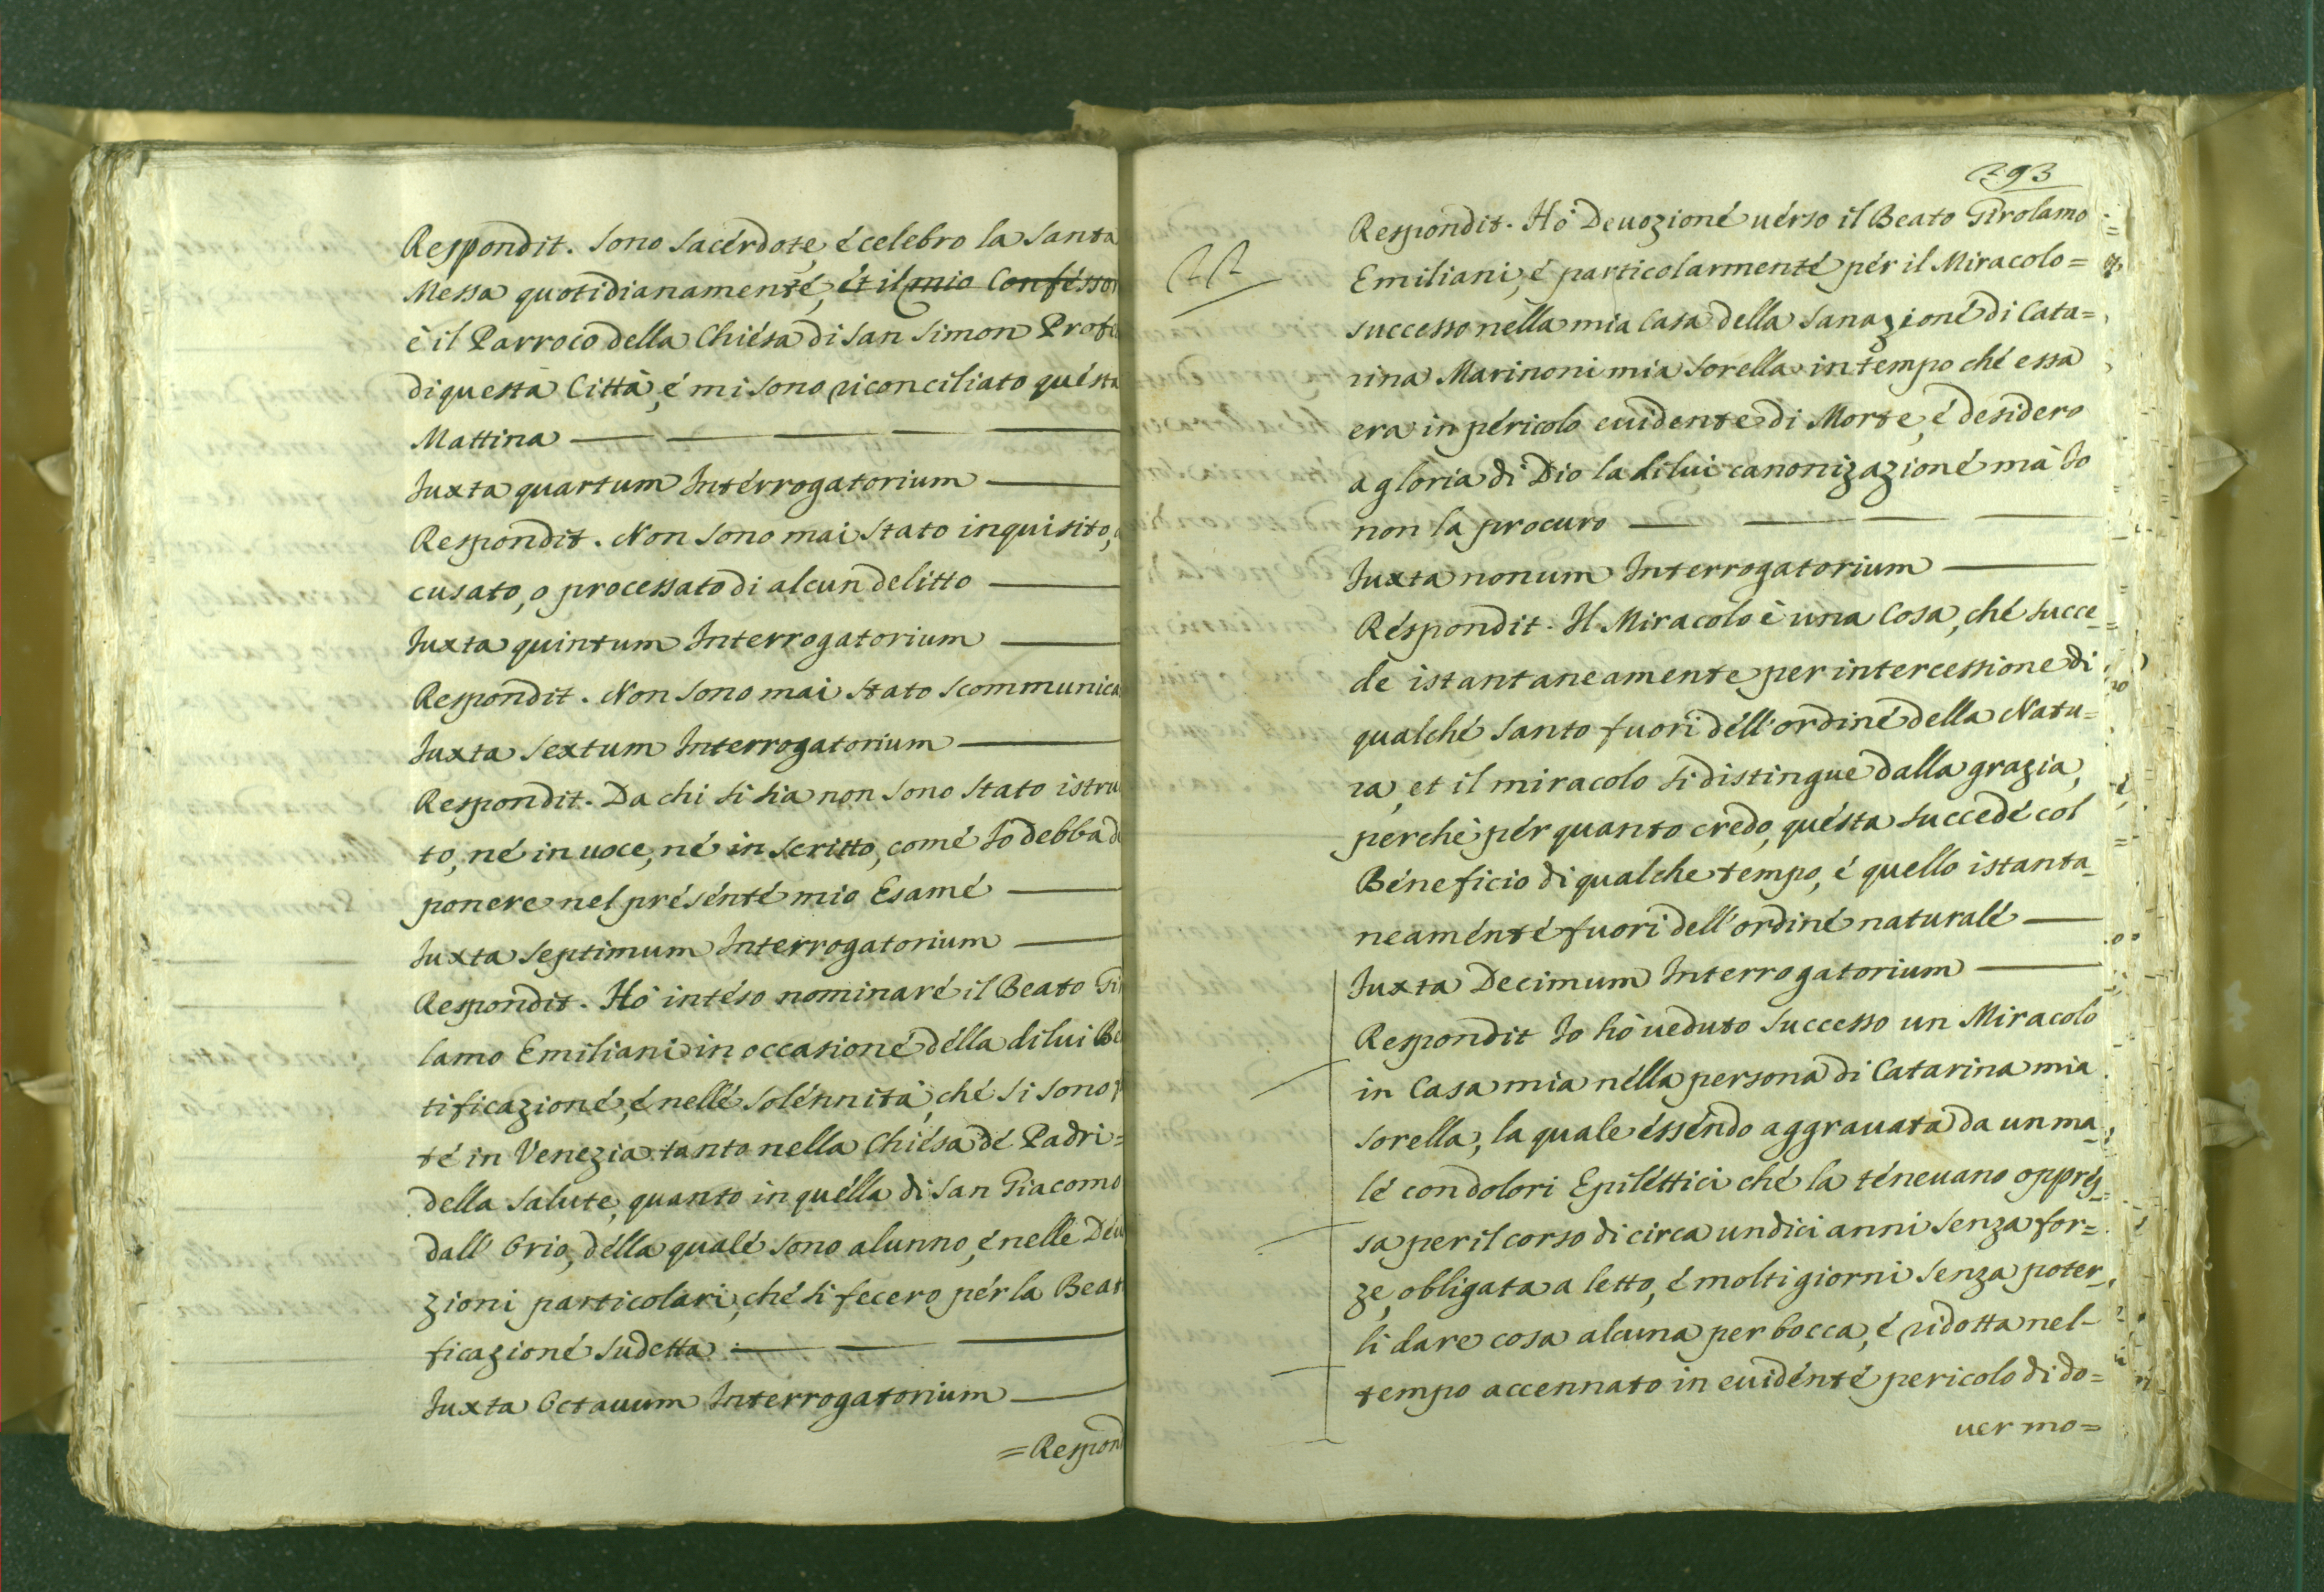 Respondit. Sono Sacérdote, é celebro la Santa
Messa quotidianamenté, ét il mio Conféssor
è il Parroco della Chiésa di San Simon Profe
di questa Città, é mi sono riconciliato quésta
Mattina
Juxta quartum Intérrogatorium
Respondit. Non sono mai stato inquisito,
cusato, o processato di alcun delitto
Juxta quintum Interrogatorium
Respondit. Non sono mai stato scommunica
Juxta Sextum Interrogatorium
Respondit. Da chi si sia non sono stato istru
to, né in uoce, né in scritto, comé Io debba de
ponere nel présénté mio Esamé
Juxta Septimum Interrogatorium
Respondit. Hó intéso nominaré il Beato Gi
lamo Emiliani in occasioné délla di lui Be
tificazioné, é nellé solénnità, ché si sono
té in Venezia tanto nella Chiésa dé Padri=
della Salute, quanto in quélla di San Giacomo
dall' Orio, délla qualé sono alunno, é nelle Déu
zioni particolari, ché si fecero pér la Beat
ficazioné sudetta
Juxta Octauum Interrogatorium
=Respond
293
Respondit. Hó Deuozioné uérso il Beato Girolamo
Emiliani, é particolarmenté pér il Miracolo=
successo nella mia Casa della Sanazioné di Cata=
rina Marinoni mia Sorella in tempo ché essa
era in péricolo euidente di Morte, é desidero
a gloria di Dio la di lui canonizazioné mà Io
non la procuro
Juxta nonum Interrogatorium
Réspondit. Il Miracolo è una Cosa, ché succe_
de istantaneamente per intercessione di
qualché Santo fuori déll'ordiné della Natu=
ra, et il miracolo si distingue dalla grazia,
perchè pér quanto credo, quésta succedé col
Béneficio di qualche tempo, é quello istanta_
neaménté fuori dell'ordiné naturalé
Juxta Decimum Interrogatorium
Respondit Io hò ueduto successo un Miracolo
in Casa mia nélla persona di Catarina mia
Sorella, la quale ésséndo aggrauata da un ma_
lé con dolori Epiléttici ché la ténevano opprés_
sa per il corso di circa undici anni senza for=
ze, obligata a letto, é molti giorni senza poter_
li dare cosa alcuna per bocca, é ridotta nel-
tempo accennato in euidénté pericolo di do=
uer mo=